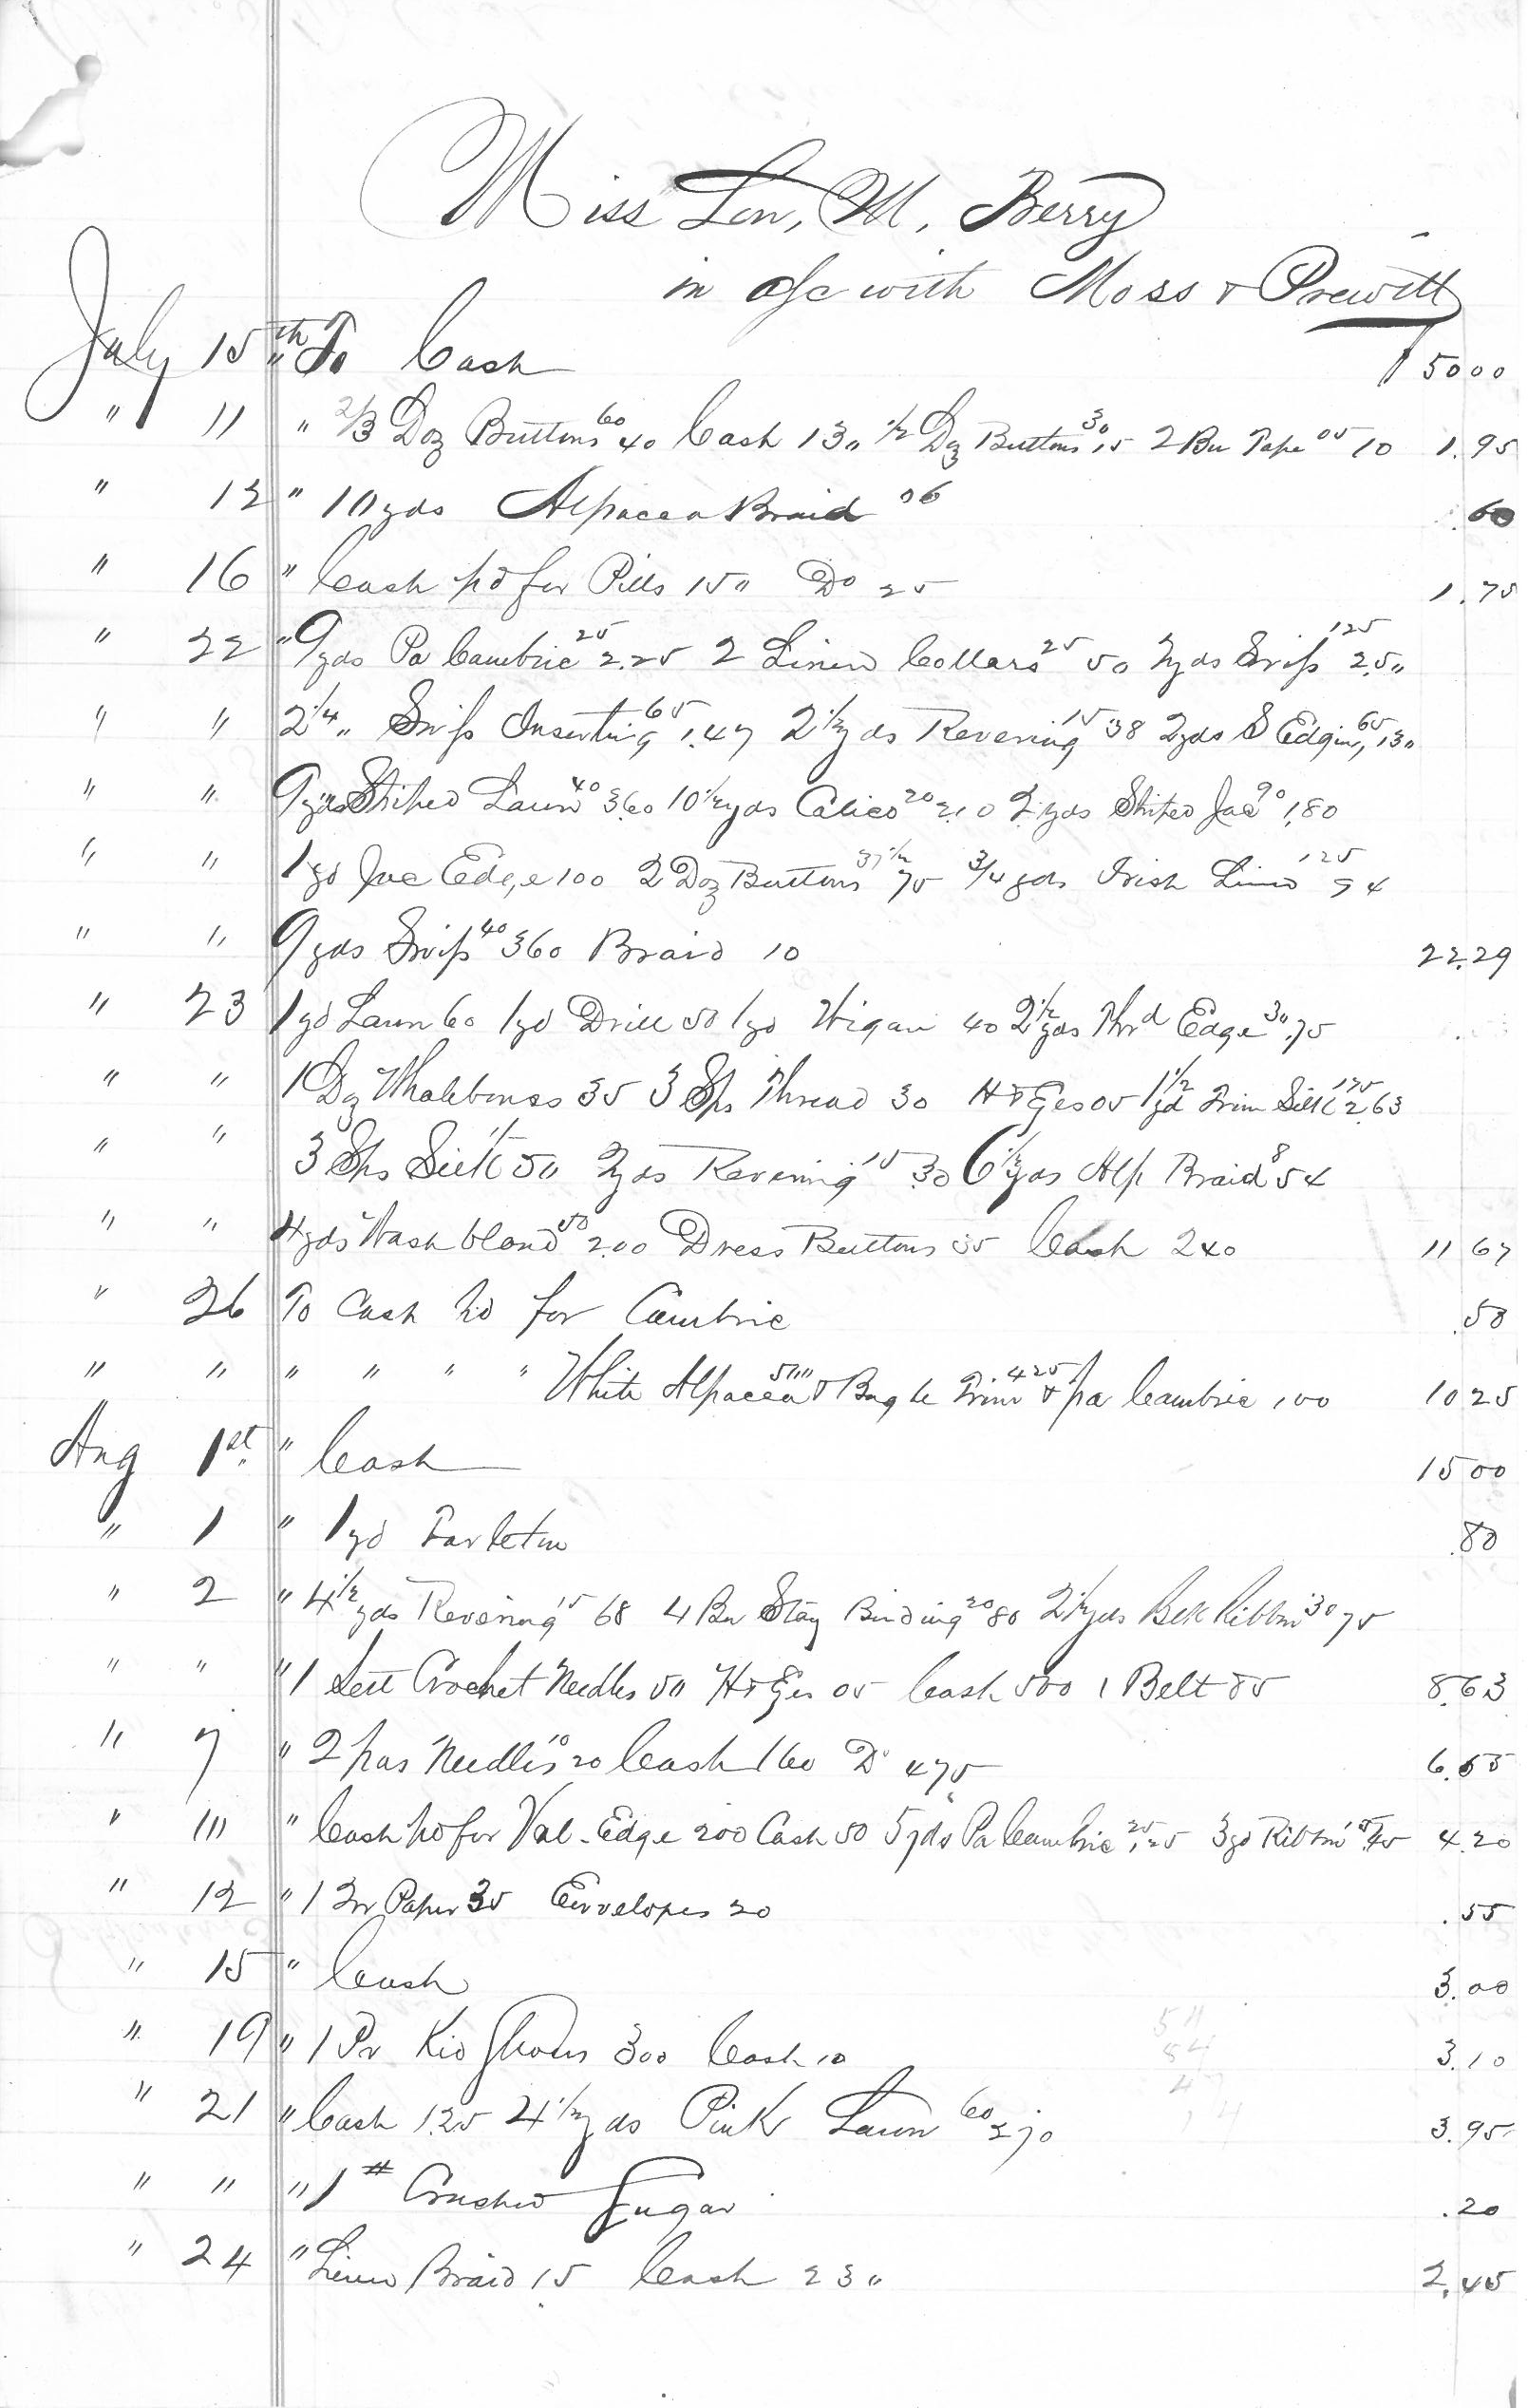 Miss Lou, M, Berry
in a/c with Moss & Prewitt
July 15th " To Cash $ 5000
" 11 " 2/3 Doz Buttons 60 40 Cash 130 1/2 Doz Buttons 30 15 2 Bu Tape 05 10 1.95
" 12 " 10 yds Alpacca Braid 06 .60
" 16 " Cash pd for Pills 150 Do 25 1.75
" 22 " 9 yds Pa Cambric 25 2.25 2 Linen Collars 25 50 2 yds Swiss 125 2.50
" " 2 1/4 " Swiss Inserting 65 1.47 2 1/2 yds Revering 15 38 2 yds S Edging 65 130
" " 9 yds Striped Lawn 40 360 10 1/2 yds Calico 20 210 2 yds Striped Jac 90 1.80
" " 1 yd Jac Edge 100 2 Doz Buttons 37 1/2 75 3/4 yds Irish Linen 125 94
" " 9 yds Swiss 40 360 Braid 10 22.29
" 23 1 yd Lawn 60 1 yd Drill 50 1 yd Wigan 40 2 1/2 yds Thrd Edge 30 .75
" " 1 Dz Whalebones 35 3 Sps Thread 30 H & Eyes 05 1 1/2 yd Trim Silk 175 2.63
" " 3 Sps Silk 50 2 yds Revering 15 30 6 1/2 yds Alp Braid 8 54
" " 4 yds Wash blond 50 2.00 Dress Buttons 35 Cash 240 11 67
" 26 To Cash pd for Cambric .50
" " " " " " White Alpacca 500 & Bugle Trim 425 & pa Cambric 100 10 25
Aug 1st " Cash 15 00
" 1 " 1 yd Tarleton .80
" 2 " 4 1/2 yds Revering 15 68 4 Bu Stay Binding 20 80 2 1/2 yds Belt Ribbon 30 75
" " " 1 Sett Crochet Needles 50 H & Eyes 05 Cash 500 1 Belt 85 8.63
" 7 " 2 pas Needles 10 20 Cash 160 Do 475 6.55
" 10 " Cash pd for Val. Edge 200 Cash 50 5 yds Pa Cambric 25 1.25 3 yd Ribbon 15 45 4.20
" 12 " 1 Qr Paper 35 Envelopes 20 .55
" 15 " Cash 3.00
" 19 " 1 Pr Kid Gloves 300 Cash 10 3.10
" 21 " Cash 1.25 4 1/2 yds Pink Lawn 60 270 3.95
" " " 1 # Crushed Sugar .20
" 24 " Linen Braid 15 Cash 230 2.45